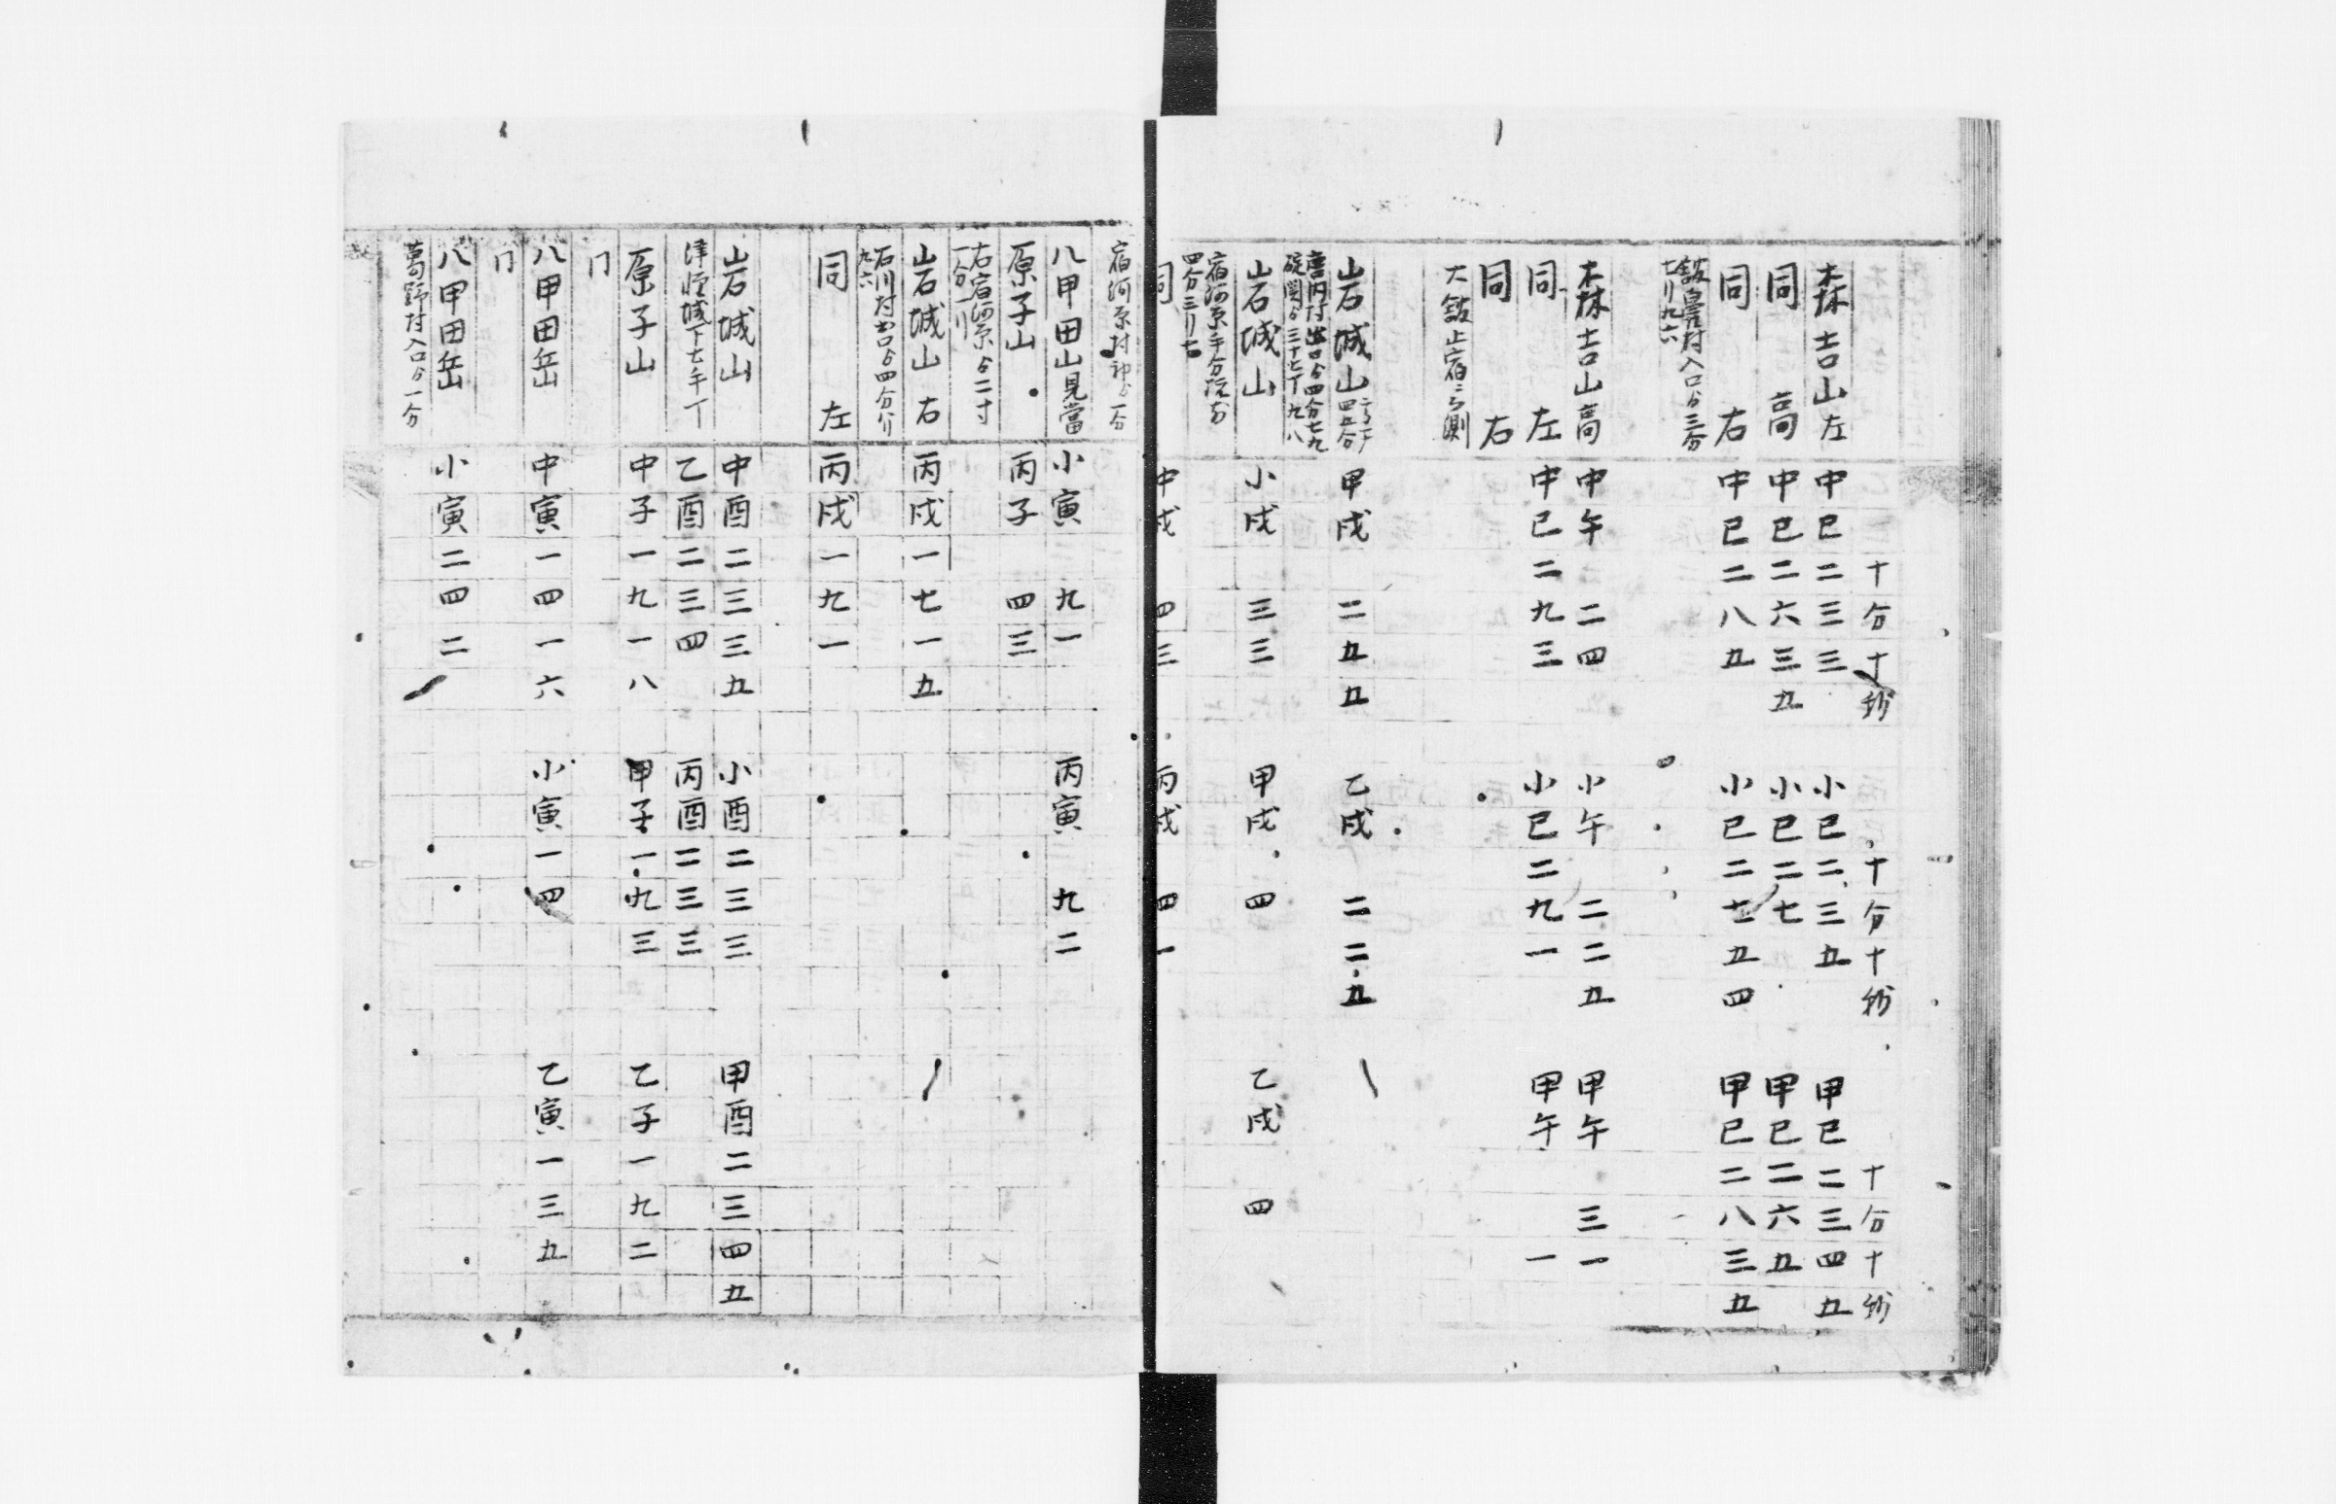 十分十秒　十分十秒　十分十秒
森吉山左　中巳二三三　小巳二三五　甲巳二三四五
同　高　中巳二六三五　小巳二七　甲巳二六五
同　右　中巳二八五　小巳二七五四　甲巳二八三五
舘鼻村入口ゟ三分
七リ九六
森吉山高　中午　二四　小午　二二五　甲午　三一
同　左　中巳二九三　小巳二九一　甲午　一
同　右
大舘止宿ニ而測
岩城山　甲戌　二五五　乙戌　二二五
唐内村出口ゟ四分七九
碇関ゟ三十七丁九八
岩城山　小戌　三三　甲戌　四　乙戌　四
宿河原
四分三リ七
同　中戌　四三　丙戌　四一
宿河原村　ゟ一分
八甲田山見當　小寅　九一　丙寅　九二
原子山　丙子　四三
右宿河原ゟ二寸
一分一リ
岩城山右　丙戌一七一五
石川村出口ゟ四分リ
九六
同　左　丙戌一九一
岩城山　中酉二三三五　小酉二三三　甲酉二三四五
津軽城下七年丁　乙酉二三四　丙酉二三三
原子山　中子一九一八　甲子一九三　乙子一九二
〃
八甲田岳　中寅一四一六　小寅一四　乙寅一三五
〃
八甲田岳　小寅二四二
葛野村入口ゟ一分